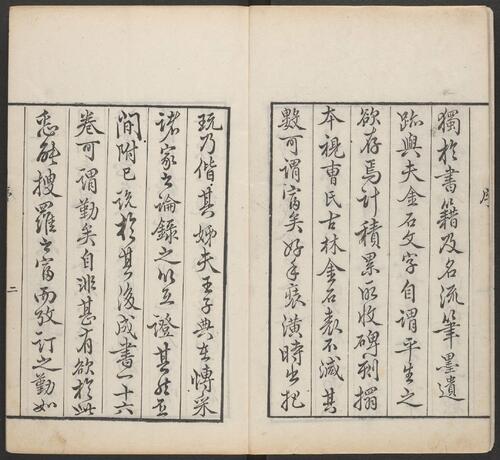 序
獨於書籍及名流筆墨遺
跡與夫金石文字自謂平生之
欲存焉計積累所收碑刻搨
本視曹氏古林金石表不減其
數可謂富矣好手裱潢時出把
玩乃偕其姊夫王子典在愽采
諸家之論錄之以互證其
間附已說於其後成書一十六
卷可謂勤矣自非甚有欲於此
惡能搜羅之富而攷訂之勤如
序 二